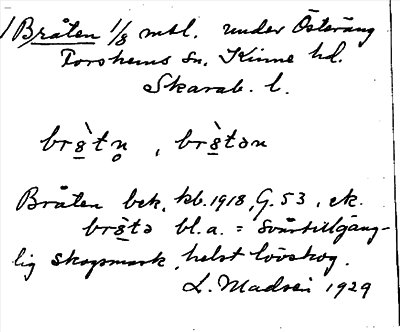 Bråten 1/8 mtl. under Österäng
Forshems sn. Kinne hd.
Skarab. l.
brs̱̀tn̥, brs̱̀tən
Bråten bek. kb. 1918, G. 53, ek.
brs̱̀tə bl.a. = svårtillgäng-
lig skogsmark, helst lövskog.
L. Madsén 1929